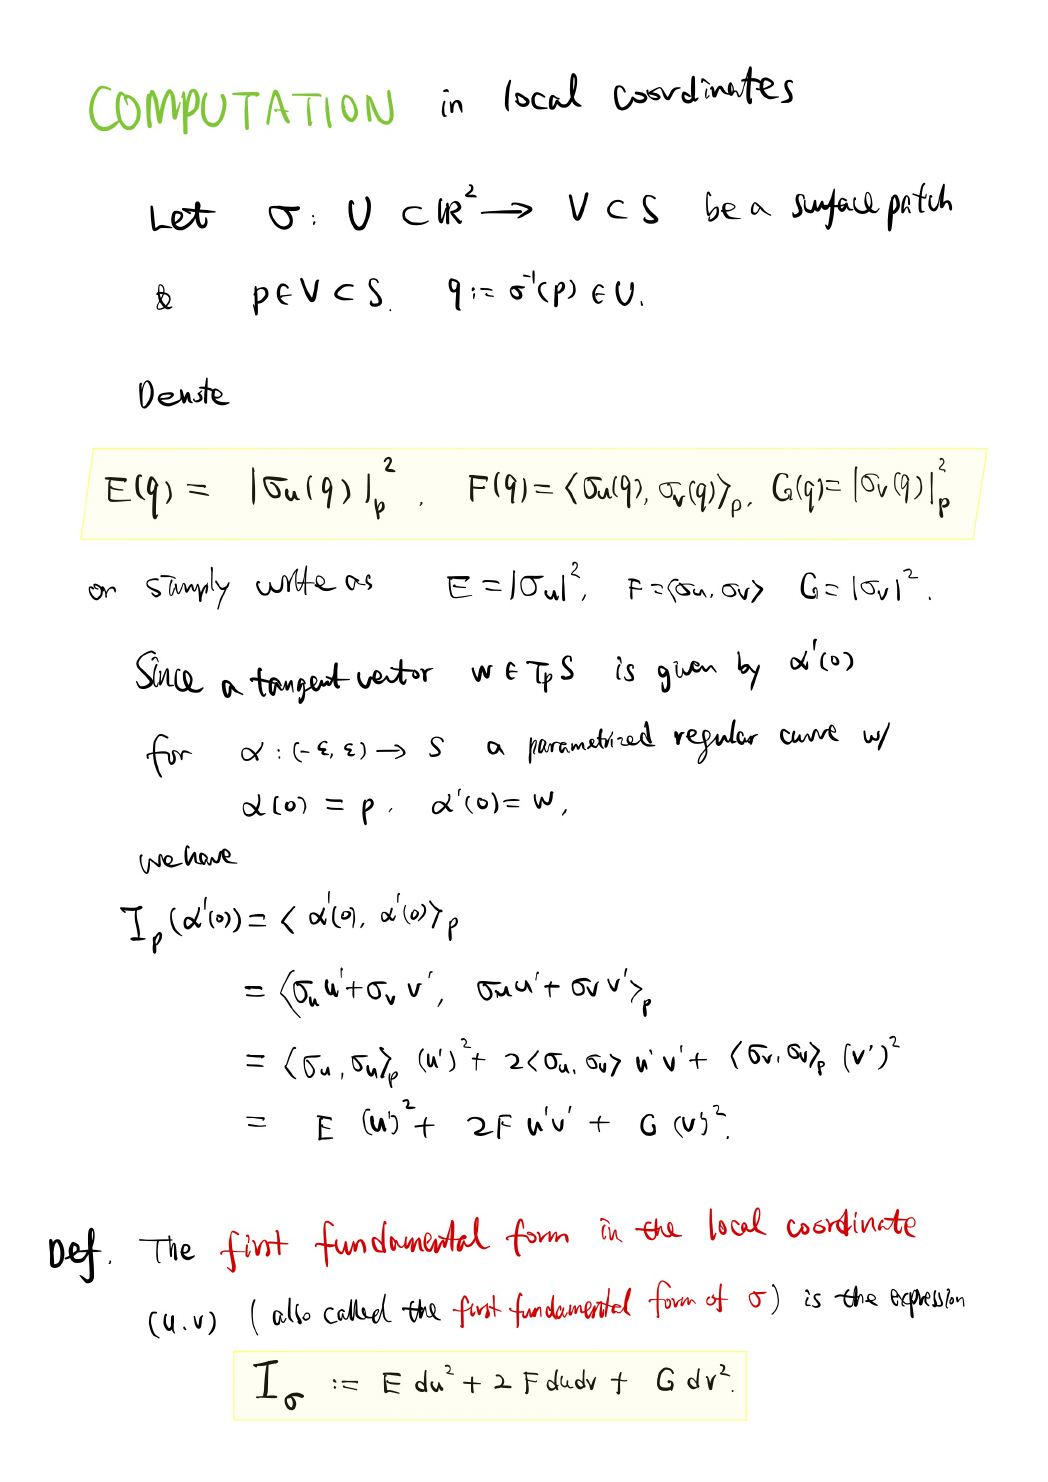 COMPUTATION in local coordinates
Let σ: U ⊂ ℝ² → V ⊂ S be a surface patch
& p ∈ V ⊂ S. q := σ⁻¹(p) ∈ U.
Denote
E(q) = |σu(q)|²p, F(q) = ⟨σu(q), σv(q)⟩p, G(q) = |σv(q)|²p
or simply write as E = |σu|², F = ⟨σu, σv⟩ G = |σv|².
Since a tangent vector w ∈ TpS is given by α'(0)
for α : (-ε, ε) → S a parametrized regular curve w/
α(0) = p, α'(0) = w,
we have
Ip(α'(0)) = ⟨α'(0), α'(0)⟩p
= ⟨σu u' + σv v', σu u' + σv v'⟩p
= ⟨σu, σu⟩p (u')² + 2⟨σu, σv⟩ u'v' + ⟨σv, σv⟩p (v')²
= E (u')² + 2F u'v' + G (v')².
Def. The first fundamental form in the local coordinate
(u.v) (also called the first fundamental form of σ) is the expression
Iσ := E du² + 2 F dudv + G dv².